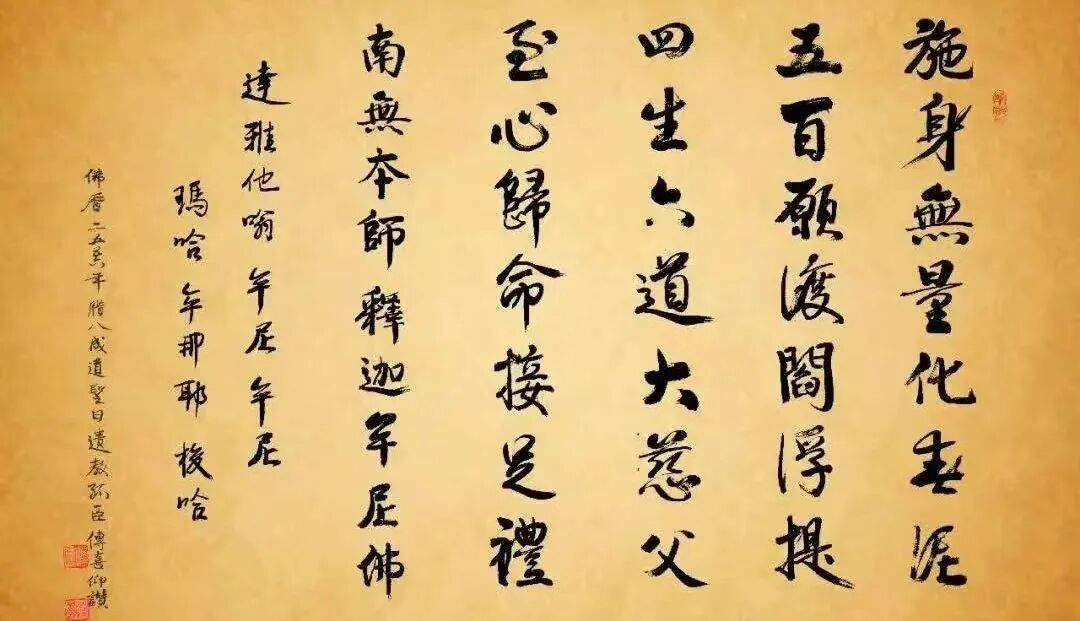 施身無量化春泥
五百願渡閻浮提
四生六道大慈父
至心歸命接足禮
南無本師釋迦牟尼佛
達雅他嗡牟尼牟尼
瑪哈牟那耶梭哈
佛曆二五五年臘八成道聖日遺教孤臣傳喜仰讚